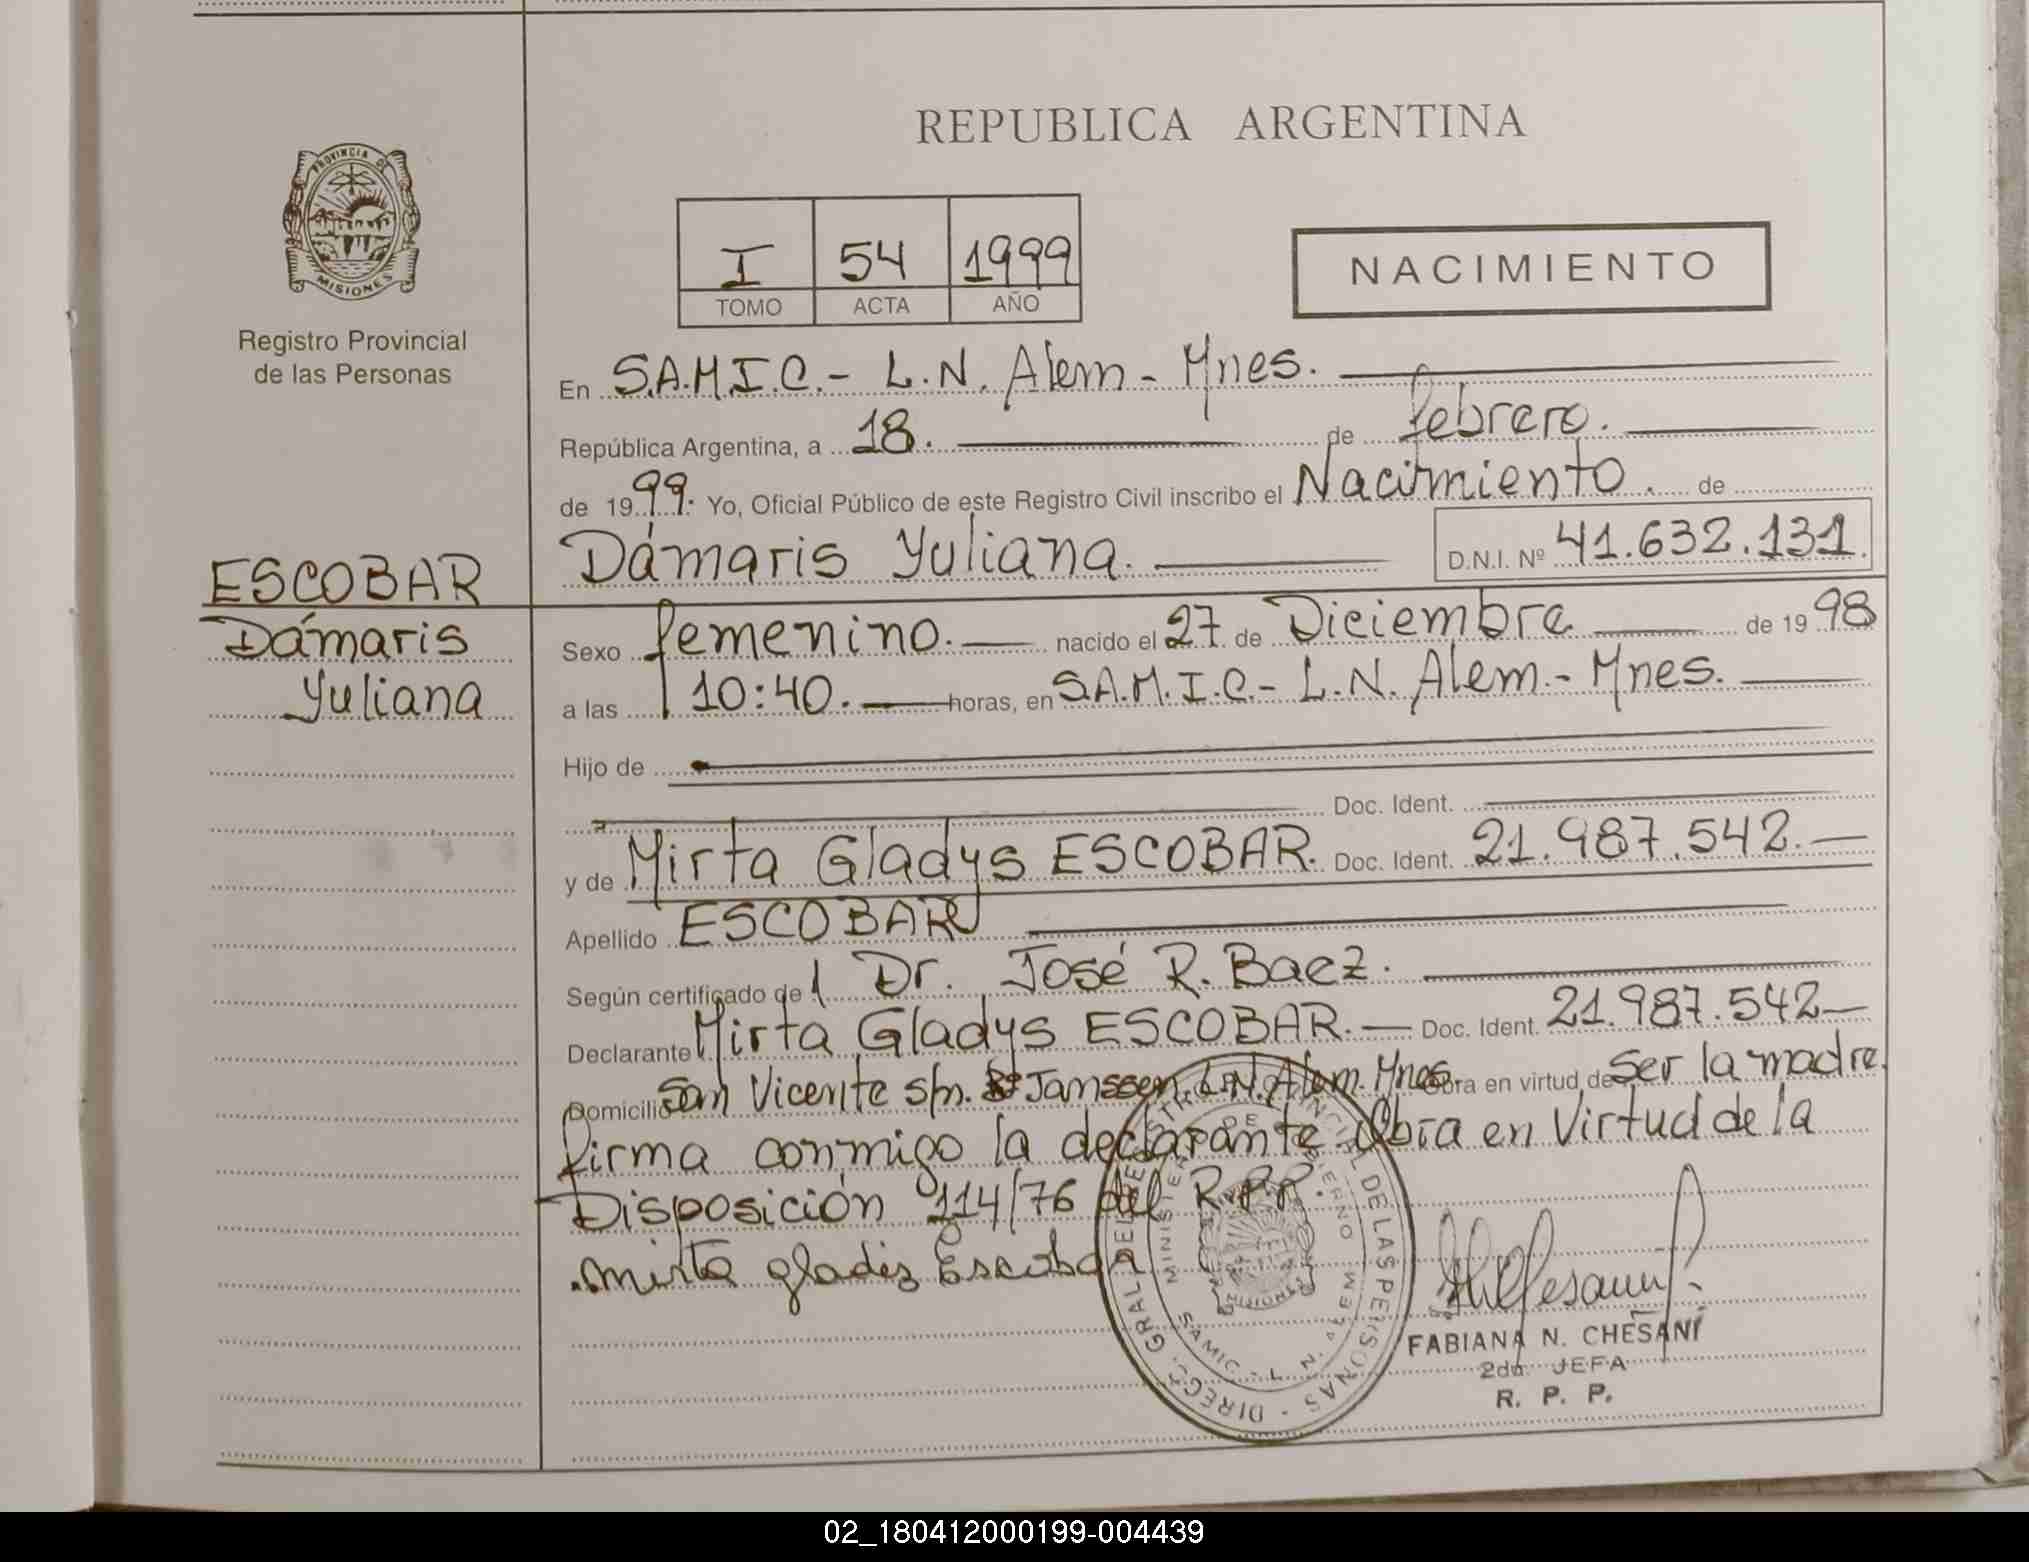 REPUBLICA ARGENTINA
PROVINCIA DE
MISIONES
Registro Provincial
de las Personas
I 54 1999
TOMO ACTA AÑO
NACIMIENTO
En S.A.M.I.C.- L.N. Alem - Mnes.
República Argentina, a 18. de febrero.
de 1999. Yo, Oficial Público de este Registro Civil inscribo el Nacimiento. de
Dámaris Yuliana. D.N.I. Nº 41.632.131.
ESCOBAR
Dámaris
Yuliana
Sexo femenino. nacido el 27 de Diciembre de 1998
a las 10:40. horas, en S.A.M.I.C.- L.N. Alem.- Mnes.
Hijo de
Doc. Ident.
y de Mirta Gladys ESCOBAR. Doc. Ident. 21.987.542.
Apellido ESCOBAR
Según certificado de Dr. José R. Baez.
Declarante Mirta Gladys ESCOBAR. Doc. Ident. 21.987.542
Domicilio San Vicente s/n. Bº Janssen. L.N. Alem. Mnes. Obra en virtud de ser la madre.
firma conmigo la declarante. Obra en Virtud de la
Disposición 114/76 del R.P.P.
mirta gladis Escobar
DIREC. GRAL. DEL REGISTRO PROVINCIAL DE LAS PERSONAS
MINISTERIO DE GOBIERNO
SAMIC - L. N. ALEM
MISIONES
FABIANA N. CHESANI
2da. JEFA
R. P. P.
02_180412000199-004439